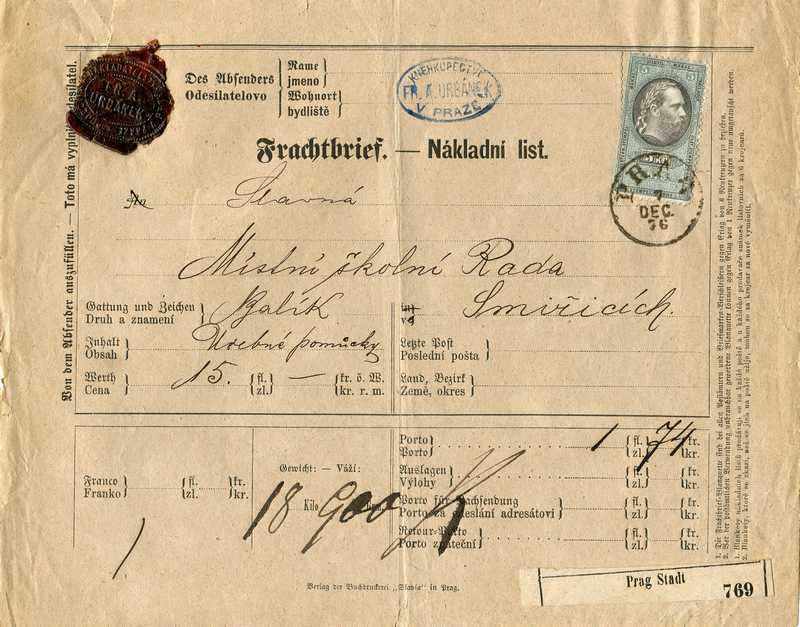 Des Absenders
Odesílatelovo
Name
jmeno
Wohnort
bydliště
KNĚHKUPECTVÍ
FR. A. URBÁNEK
V PRAZE
FR. A.
URBÁNEK
5 5
5 KR
PRAG
7
DEC.
76
Frachtbrief. — Nákladní list.
An Slavná
Místní školní Rada
Gattung und Zeichen
Druh a znamení
Balík
in
v
Smiřicích.
Inhalt
Obsah
Učebné pomůcky
Letzte Post
Poslední pošta
Werth
Cena
15. fl. — kr. ö. W.
zl. kr. r. m.
Land, Bezirk
Země, okres
Von dem Absender auszufüllen. — Toto má vyplniti odesílatel.
Franco
Franko
fl. kr.
zl. kr.
Gewicht: — Váží:
18 Kilo 900
Porto
Porto
1 fl. 74 kr.
zl. kr.
Auslagen
Výlohy
fl. kr.
zl. kr.
Porto für Nachsendung
Porto za odeslání adresátovi
fl. kr.
zl. kr.
Retour-Porto
Porto zpáteční
fl. kr.
zl. kr.
Verlag der Buchdruckerei „Slavia" in Prag.
Prag Stadt
769